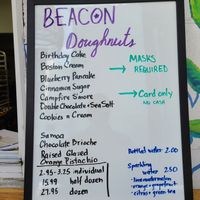 BEACON
Doughnuts
Birthday Cake
Boston Cream
Blueberry Pancake
Cinnamon Sugar
Campfire S'more
Double Chocolate + Sea Salt
Cookies n Cream
MASKS
→ REQUIRED
→ Card only
NO CASH
Samoa
Chocolate Drizzle
Raised Glazed
Orange Pistachio
2.95-3.25 individual
15.99 half dozen
27.95 dozen
Bottled water 2.00
Sparkling
water 2.50
• lime watermelon
• orange + grapefruit
• citrus + green tea